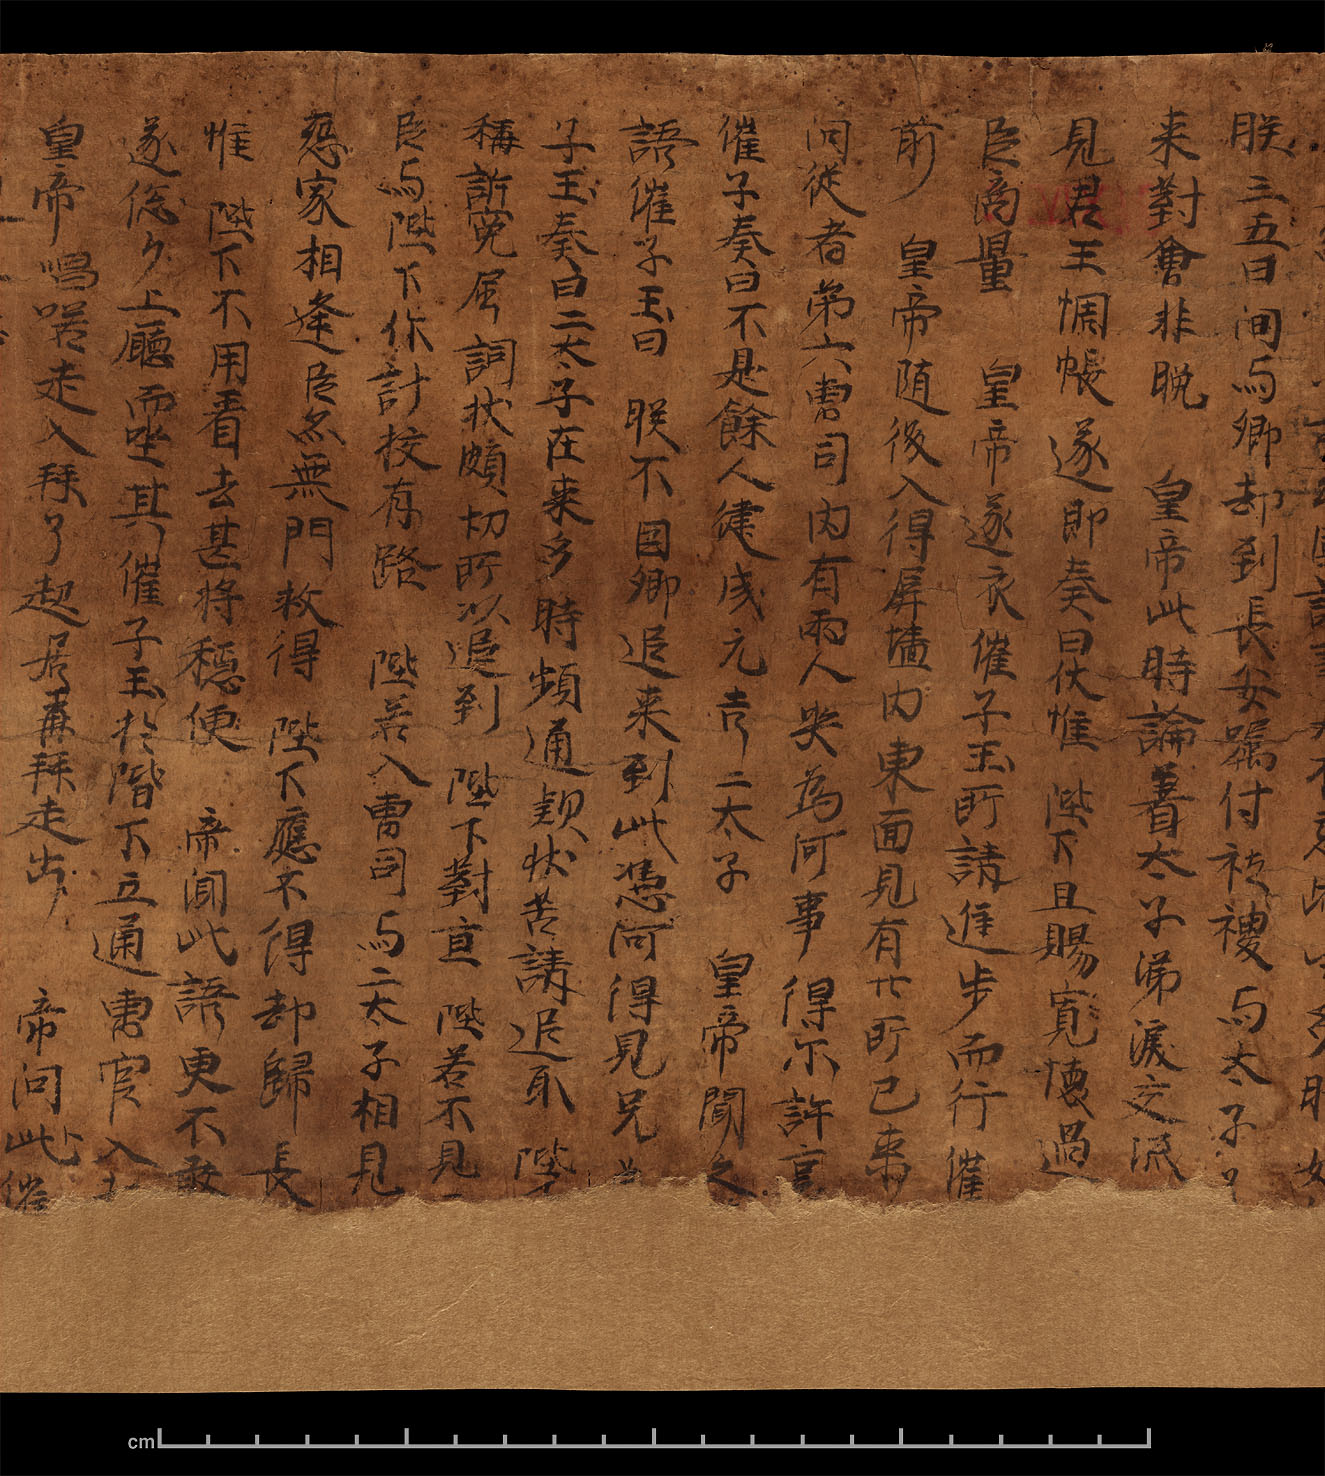 朕三五日间与卿却到長安嘱付社稷与太子
来對會非晚　皇帝此時論着太子涕淚交流
見君王惆悵遂即奏曰伏惟　陛下且賜寬懷過
臣商量　皇帝遂衣催子玉所請進步而行催
前　皇帝随後入得屏墻内東面見有廿所已来
问從者弟六曹司内有两人哭為何事得尓許
催子奏曰不是餘人建成元吉二太子　皇帝聞之
語催子玉曰　朕不因卿追来到此憑何得見兄
子玉奏曰二太子在来多時頻通款状苦請追取　陛
稱訴冤屈詞状頗切所以追到　陛下對直　陛若不見
臣与陛下作計校有路　陛若入曹司与二太子相見
惡家相逢臣亦無門救得　陛下應不得却歸長
惟　陛下不用看去甚将穩便　帝闻此語更不敢
遂忩々上廳而坐其催子玉於階下立通曹官入
皇帝唱喏走入拜了起居再拜走出　帝问此催